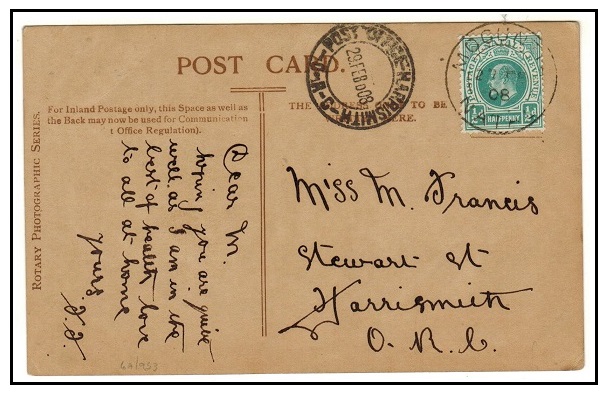 POST CARD.
POST OFFICE HARRISMITH
29 FEB 08
NATAL
08
POSTAGE REVENUE
½d HALFPENNY ½d
For Inland Postage only, this Space as well as
the Back may now be used for Communication
t Office Regulation).
THE TO BE
HERE.
ROTARY PHOTOGRAPHIC SERIES.
Dear M.
hoping you are quite
well. as I am in the
best of health love
to all at home
yours.
Miss M. Francis
Stewart St
Harrismith
O. R. C.